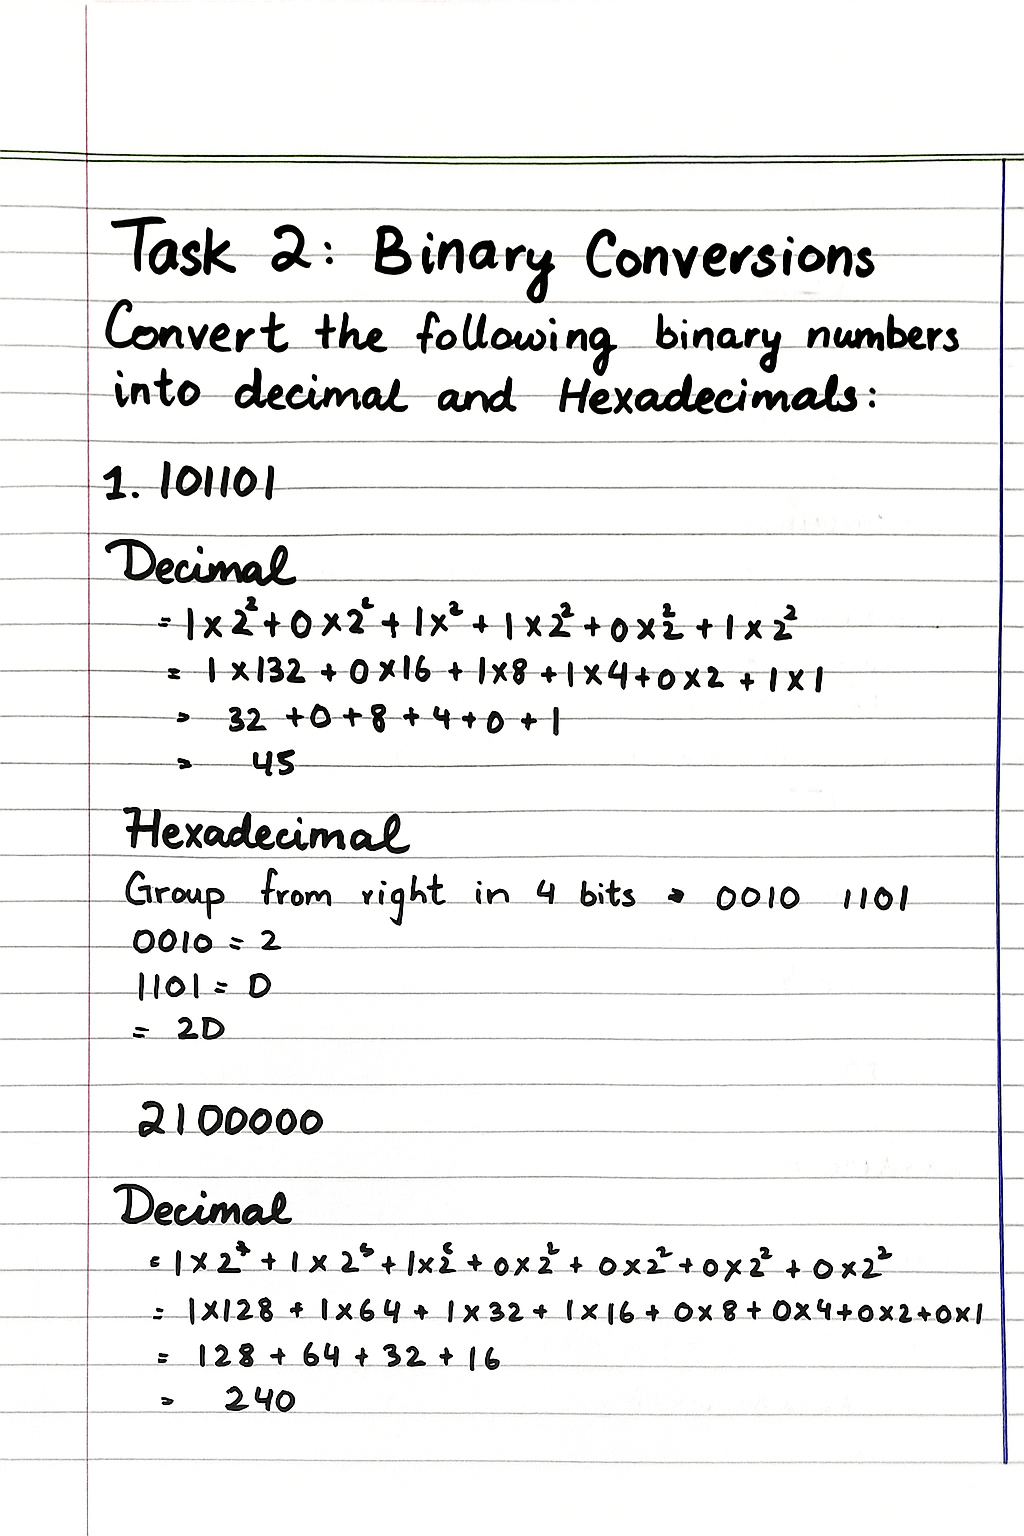 Task 2: Binary Conversions
Convert the following binary numbers
into decimal and Hexadecimals:
1. 101101
Decimal
= 1 x 2² + 0 x 2² + 1x² + 1 x 2² + 0 x 2² + 1 x 2²
= 1 x 132 + 0 x 16 + 1x8 + 1 x 4 + 0 x 2 + 1 x 1
= 32 + 0 + 8 + 4 + 0 + 1
= 45
Hexadecimal
Group from right in 4 bits = 0010 1101
0010 = 2
1101 = D
= 2D
2100000
Decimal
= 1 x 2⁷ + 1 x 2⁵ + 1x2⁶ + 0 x 2² + 0 x 2² + 0 x 2² + 0 x 2²
= 1x128 + 1 x 64 + 1 x 32 + 1 x 16 + 0 x 8 + 0 x 4 + 0 x 2 + 0 x 1
= 128 + 64 + 32 + 16
= 240